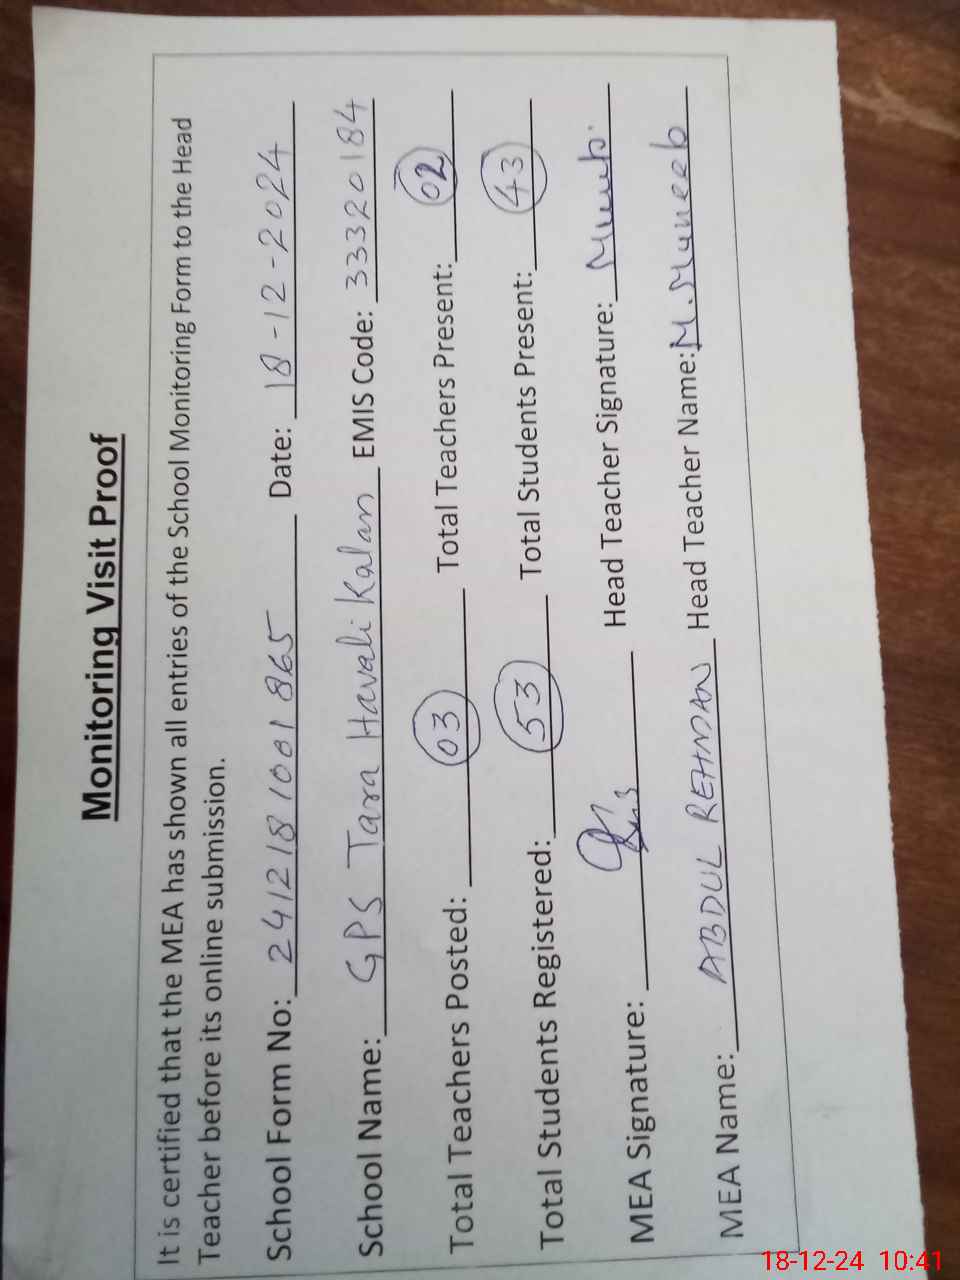 Monitoring Visit Proof
It is certified that the MEA has shown all entries of the School Monitoring Form to the Head
Teacher before its online submission.
School Form No: 2412181001865 Date: 18-12-2024
School Name: GPS Tara Havali Kalan EMIS Code: 33320184
Total Teachers Posted: 03 Total Teachers Present: 02
Total Students Registered: 53 Total Students Present: 43
MEA Signature: Head Teacher Signature: Muneeb.
MEA Name: ABDUL REHMAN Head Teacher Name: M. Muneeb
18-12-24 10:41